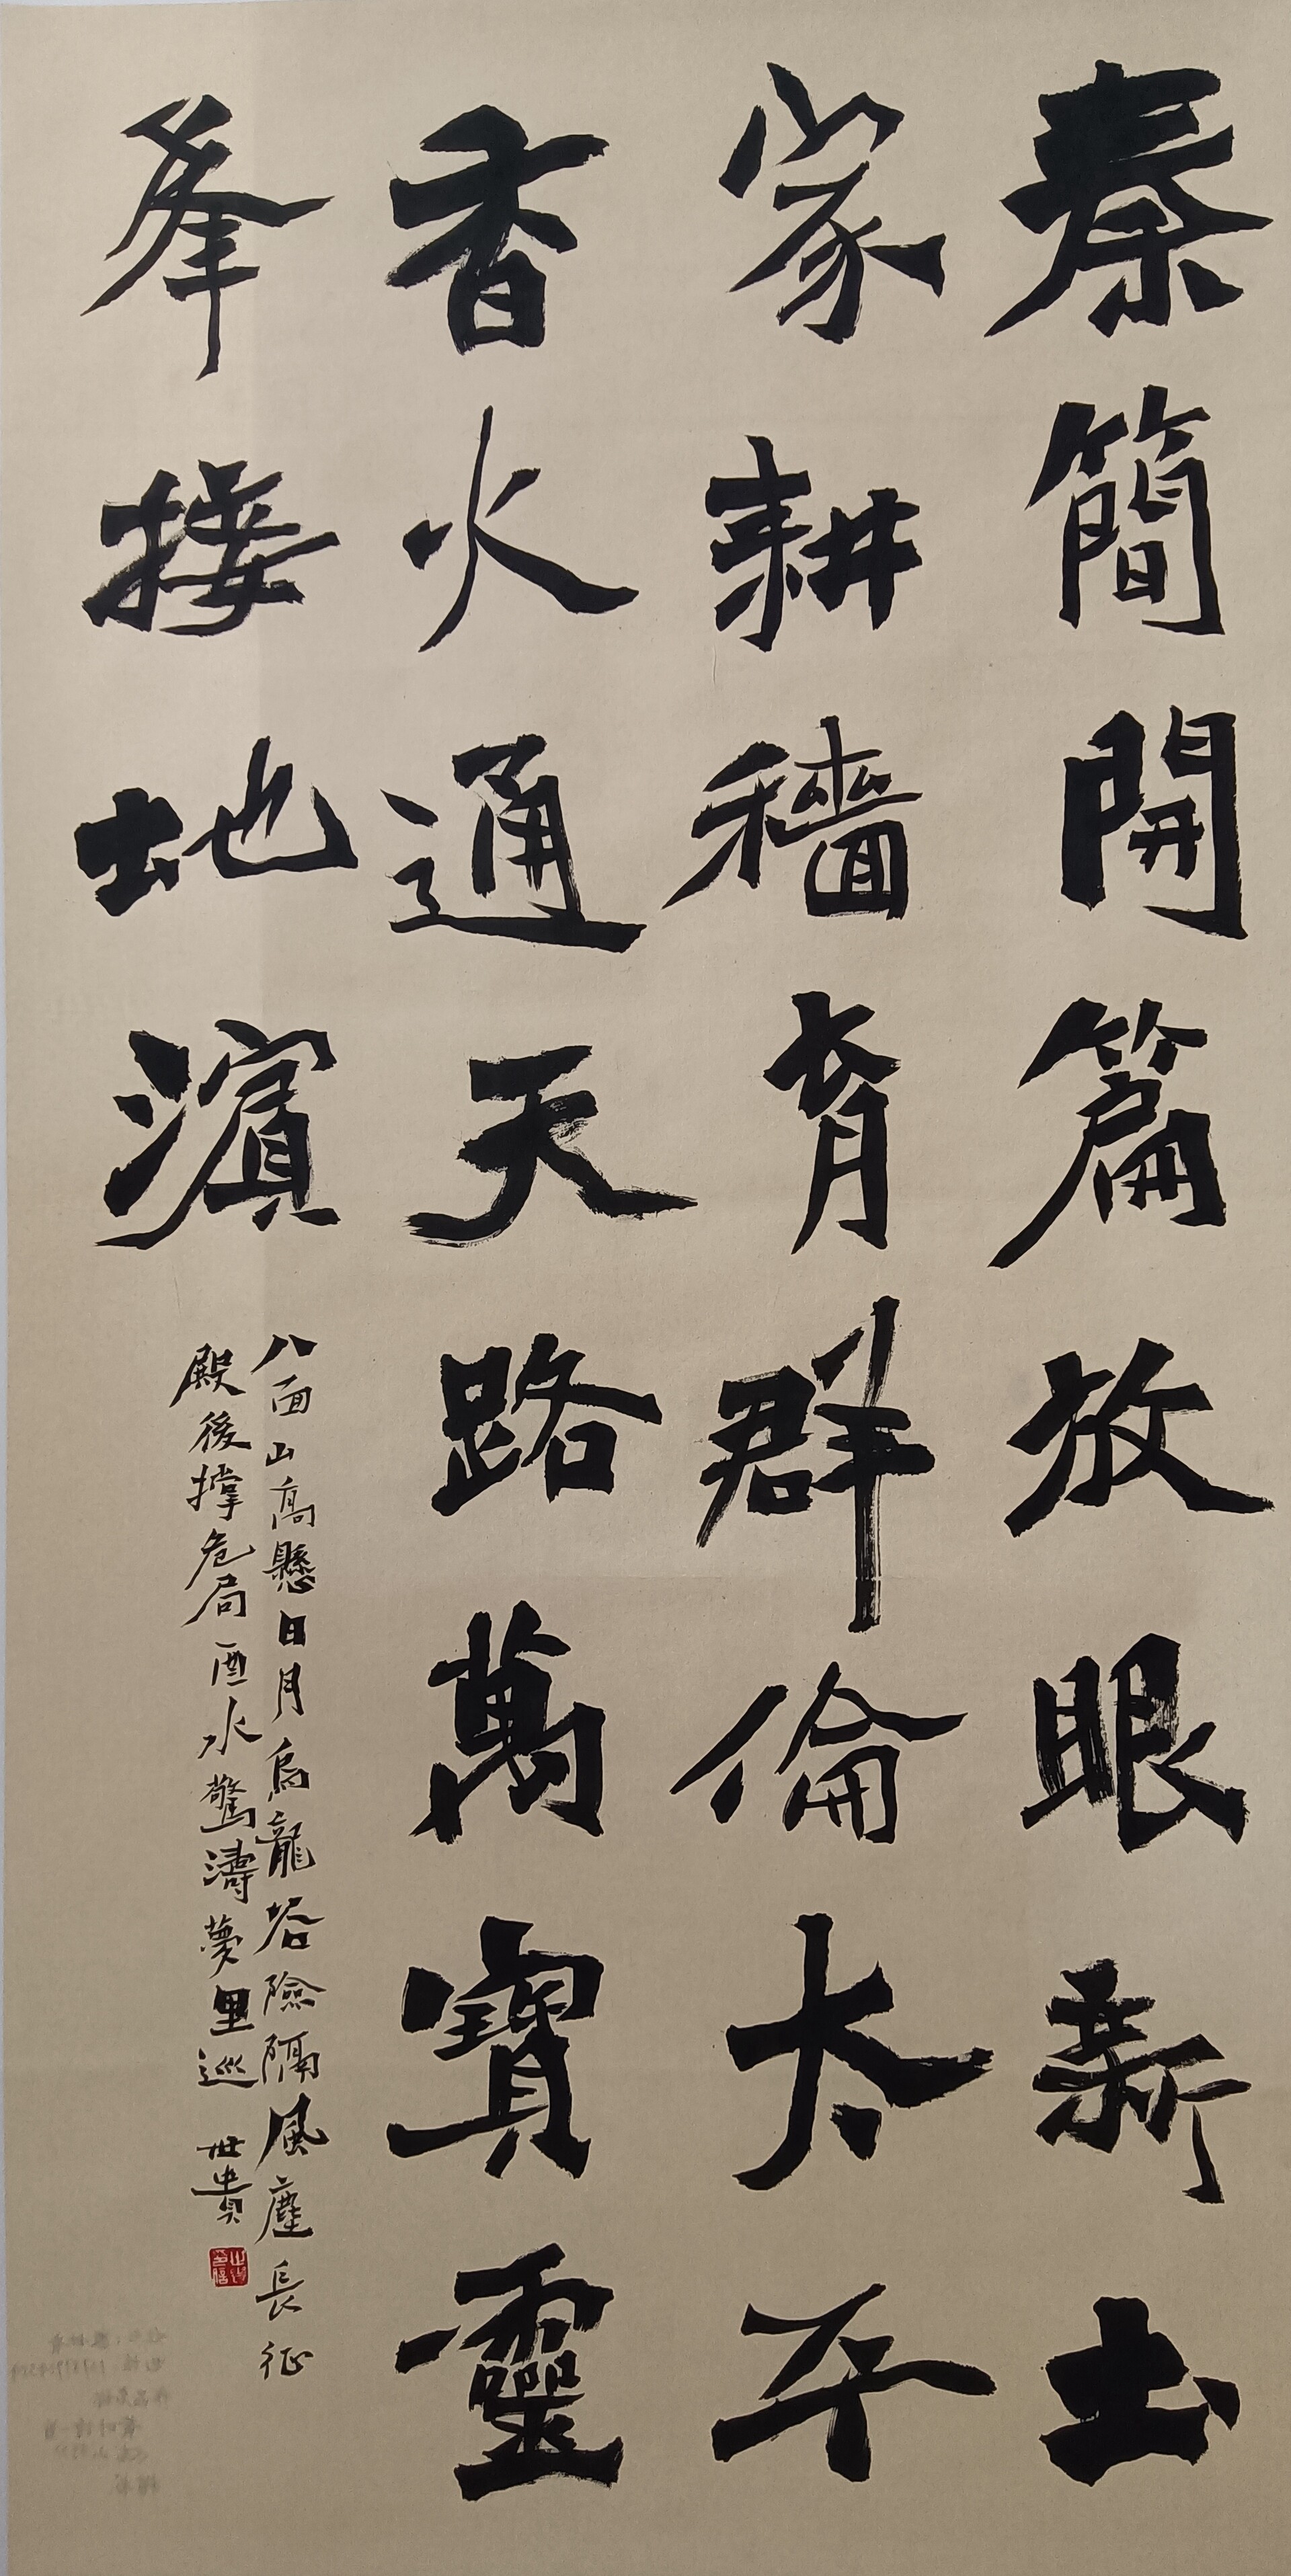 秦簡開篇放眼新土
家耕穡育群倫太平
香火通天路萬寶靈
峯接地濱
八面山高懸日月烏龍峪險隔風塵長征
殿後撐危局酉水驚濤夢里巡 世貴